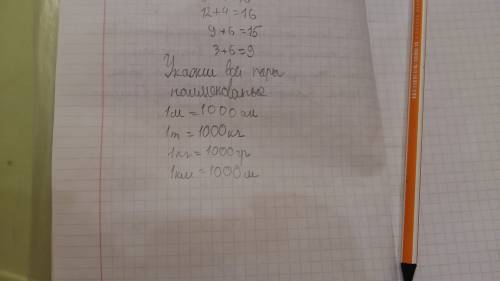 12+4=16
9+6=15
3+6=9
Укажи все пары
наименованье
1м = 1000 мм
1т = 1000кг
1кг = 1000гр
1км = 1000 м